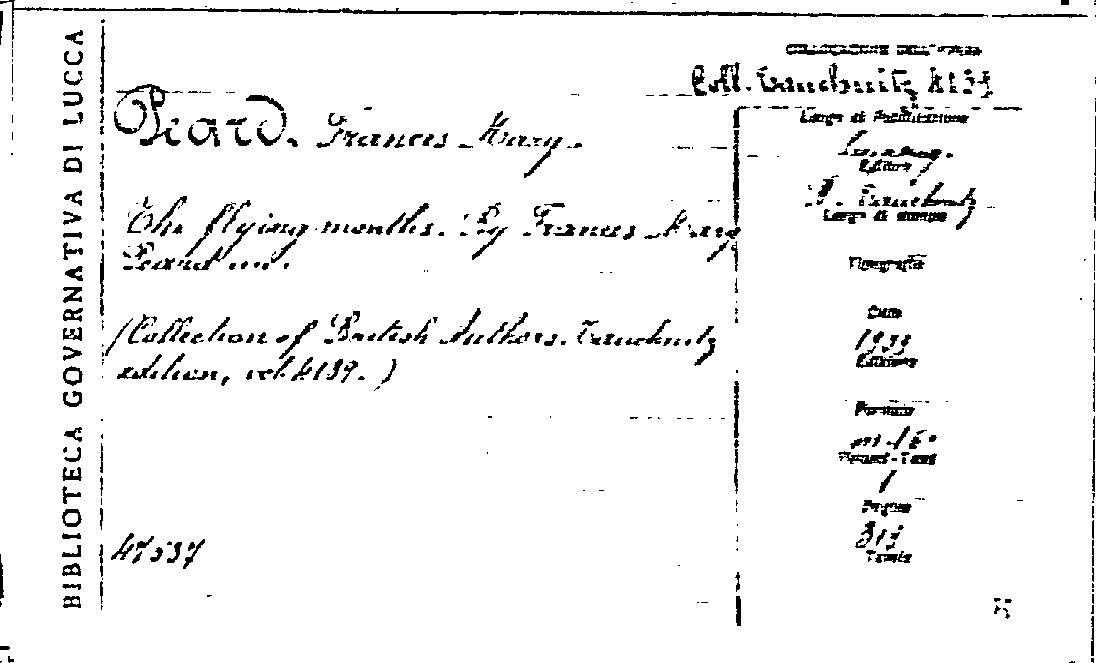 BIBLIOTECA GOVERNATIVA DI LUCCA
COLLOCAZIONE DELL'OPERA
Coll. Tauchnitz 4139
Peard. Frances Mary.
The flying months. By Frances Mary
Peard ....
(Collection of British Authors. Tauchnitz
edition, vol. 4139.)
47537
Luogo di Pubblicazione
Editore
B. Tauchnitz
Luogo di stampa
Tipografia
Data
Edizione
Formato
in-16°
Volumi-Tomi
1
Pagine
Tavole